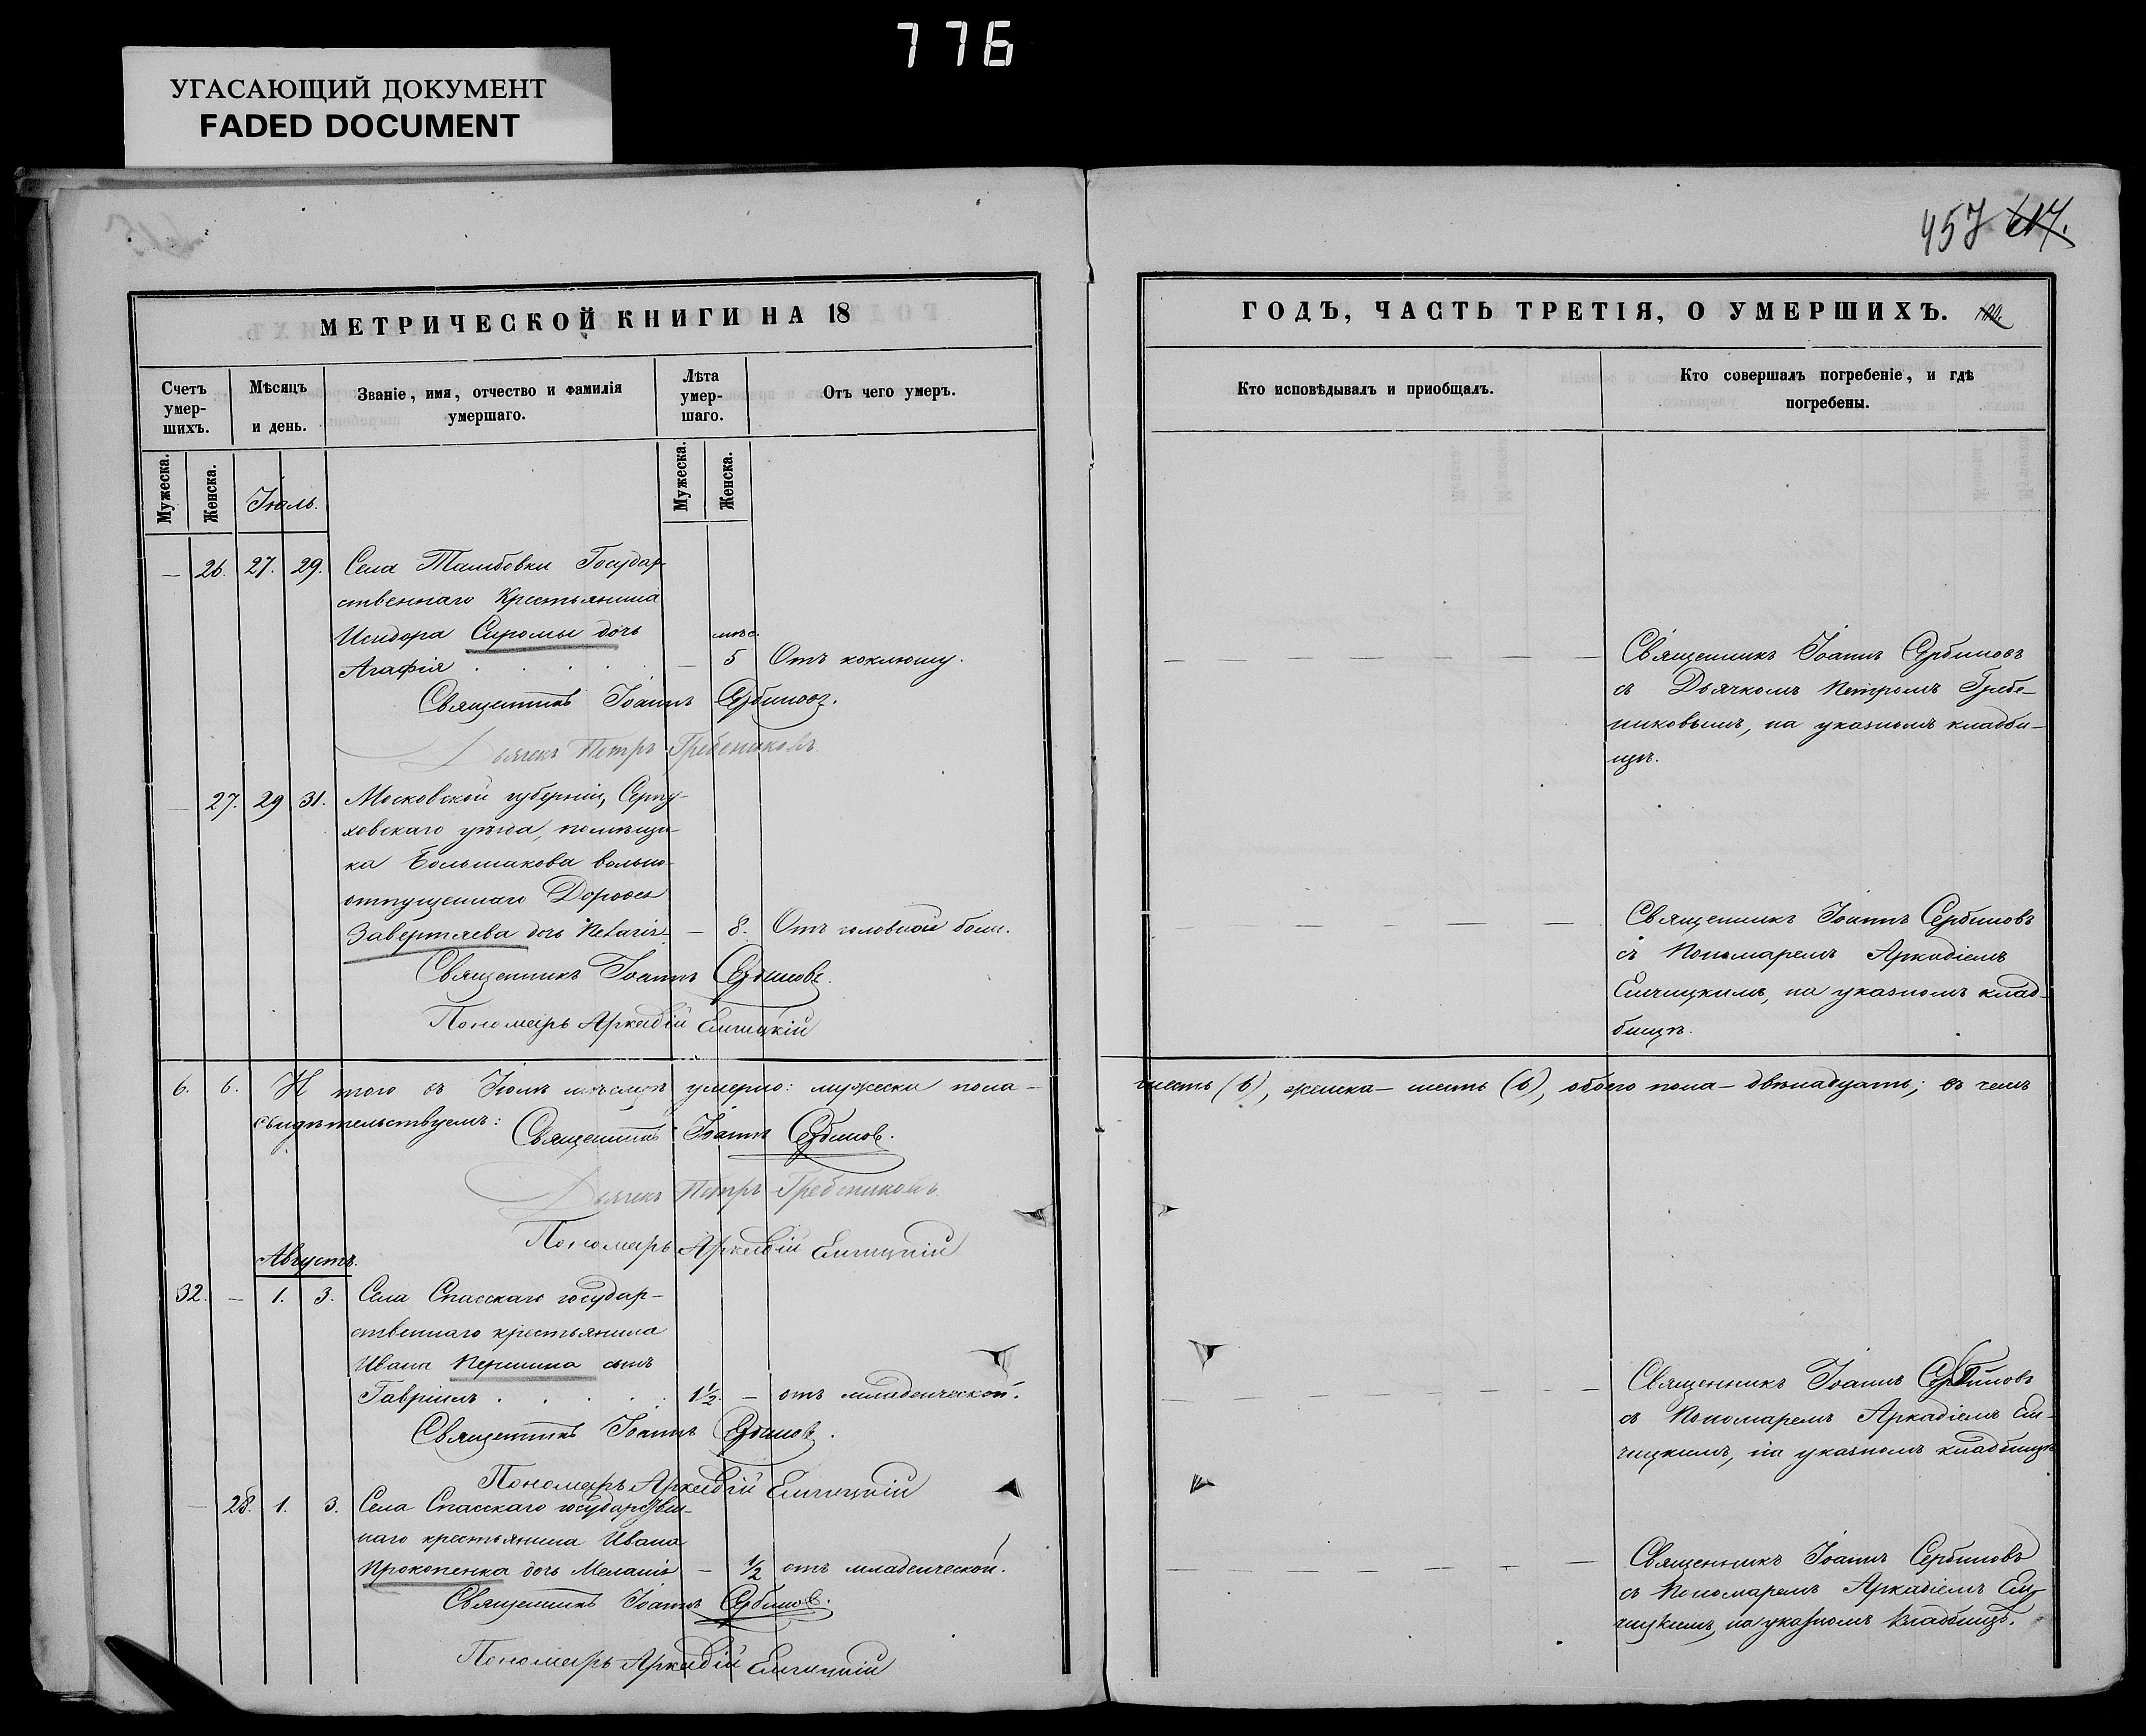 776
УГАСАЮЩИЙ ДОКУМЕНТ
FADED DOCUMENT
457 617.
МЕТРИЧЕСКОЙ КНИГИ НА 18
ГОДЪ, ЧАСТЬ ТРЕТІЯ, О УМЕРШИХЪ.
Счетъ умер-шихъ.
Мѣсяцъ и день.
Званіе, имя, отчество и фамилія умершаго.
Лѣта умер-шаго.
Отъ чего умеръ.
Кто исповѣдывалъ и приобщалъ.
Кто совершалъ погребеніе, и гдѣ погребены.
Мужеска. Женска.
Іюль.
Мужеска. Женска.
— 26. 27. 29. Села Тамбовки Государ-
ственнаго Крестьянина
Исидора Сиромы дочь мѣс.
Агафія . . . . — 5 Отъ коклюшу.
Священникъ Іоаннъ Сербиновъ.
Дьячекъ Петръ Гребениковъ
Священникъ Іоаннъ Сербиновъ
съ Дьячкомъ Петромъ Гребе-
никовымъ, на указномъ кладби-
щѣ.
— 27. 29 31. Московской губерніи, Серпу-
ховскаго уѣзда, помѣщи-
ка Большакова вольно-
отпущеннаго Дорофея
дочь — 8. Отъ головной боли.
Священникъ Іоаннъ Сербиновъ.
Пономарь Аркадій Емчицкій
Священникъ Іоаннъ Сербиновъ
съ Пономаремъ Аркадіемъ
Емчицкимъ, на указномъ клад-
бищѣ.
6. 6. И того въ Іюлѣ мѣсяцѣ умерло: мужеска пола — шесть (6), женска — шесть (6), обоего пола — двѣнадцать; въ чемъ
свидѣтельствуемъ: Священникъ Іоаннъ Сербиновъ.
Дьячекъ Петръ Гребениковъ.
Пономарь Аркадій Емчицкій
Августъ.
32. — 1. 3. Села Спасскаго государ-
ственнаго крестьянина
Ивана Першина сынъ
Гавріилъ . . . . 1½. — отъ младенческой.
Священникъ Іоаннъ Сербиновъ.
Пономарь Аркадій Емчицкій
Священникъ Іоаннъ Сербиновъ
съ Пономаремъ Аркадіемъ Ем-
чицкимъ, на указномъ кладбищѣ
— 28. 1. 3. Села Спасскаго государствен-
наго крестьянина Ивана
Прокопенка дочь Меланія — ½ отъ младенческой.
Священникъ Іоаннъ Сербиновъ.
Пономарь Аркадій Емчицкій
Священникъ Іоаннъ Сербиновъ
съ Пономаремъ Аркадіемъ Ем-
чицкимъ, на указномъ кладбищѣ.